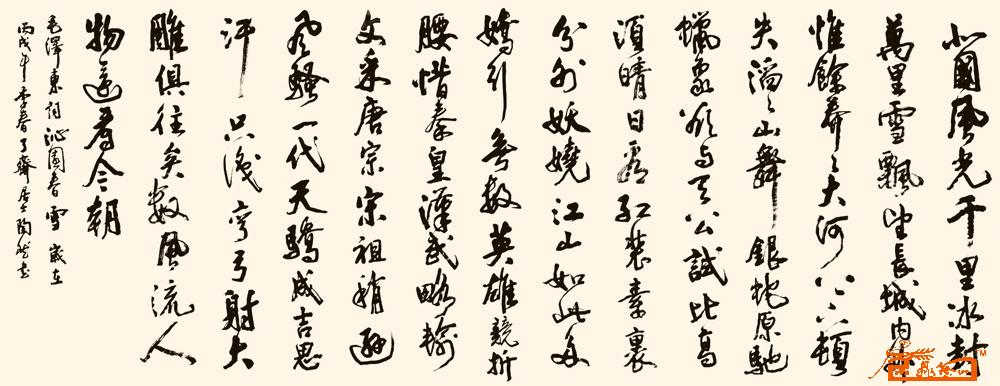 北國風光千里冰封
萬里雪飄望長城内外
惟餘莽〻大河上下頓
失滔〻山舞銀蛇原馳
蠟象欲與天公試比高
須晴日看紅裝素裹
分外妖嬈江山如此多
嬌引無數英雄競折
腰惜秦皇漢武略輸
文采唐宗宋祖稍遜
風騷一代天驕成吉思
汗只識彎弓射大
雕俱往矣數風流人
物還看今朝
毛澤東詞沁園春雪歲在
丙戌年季春了齋居士陶然書